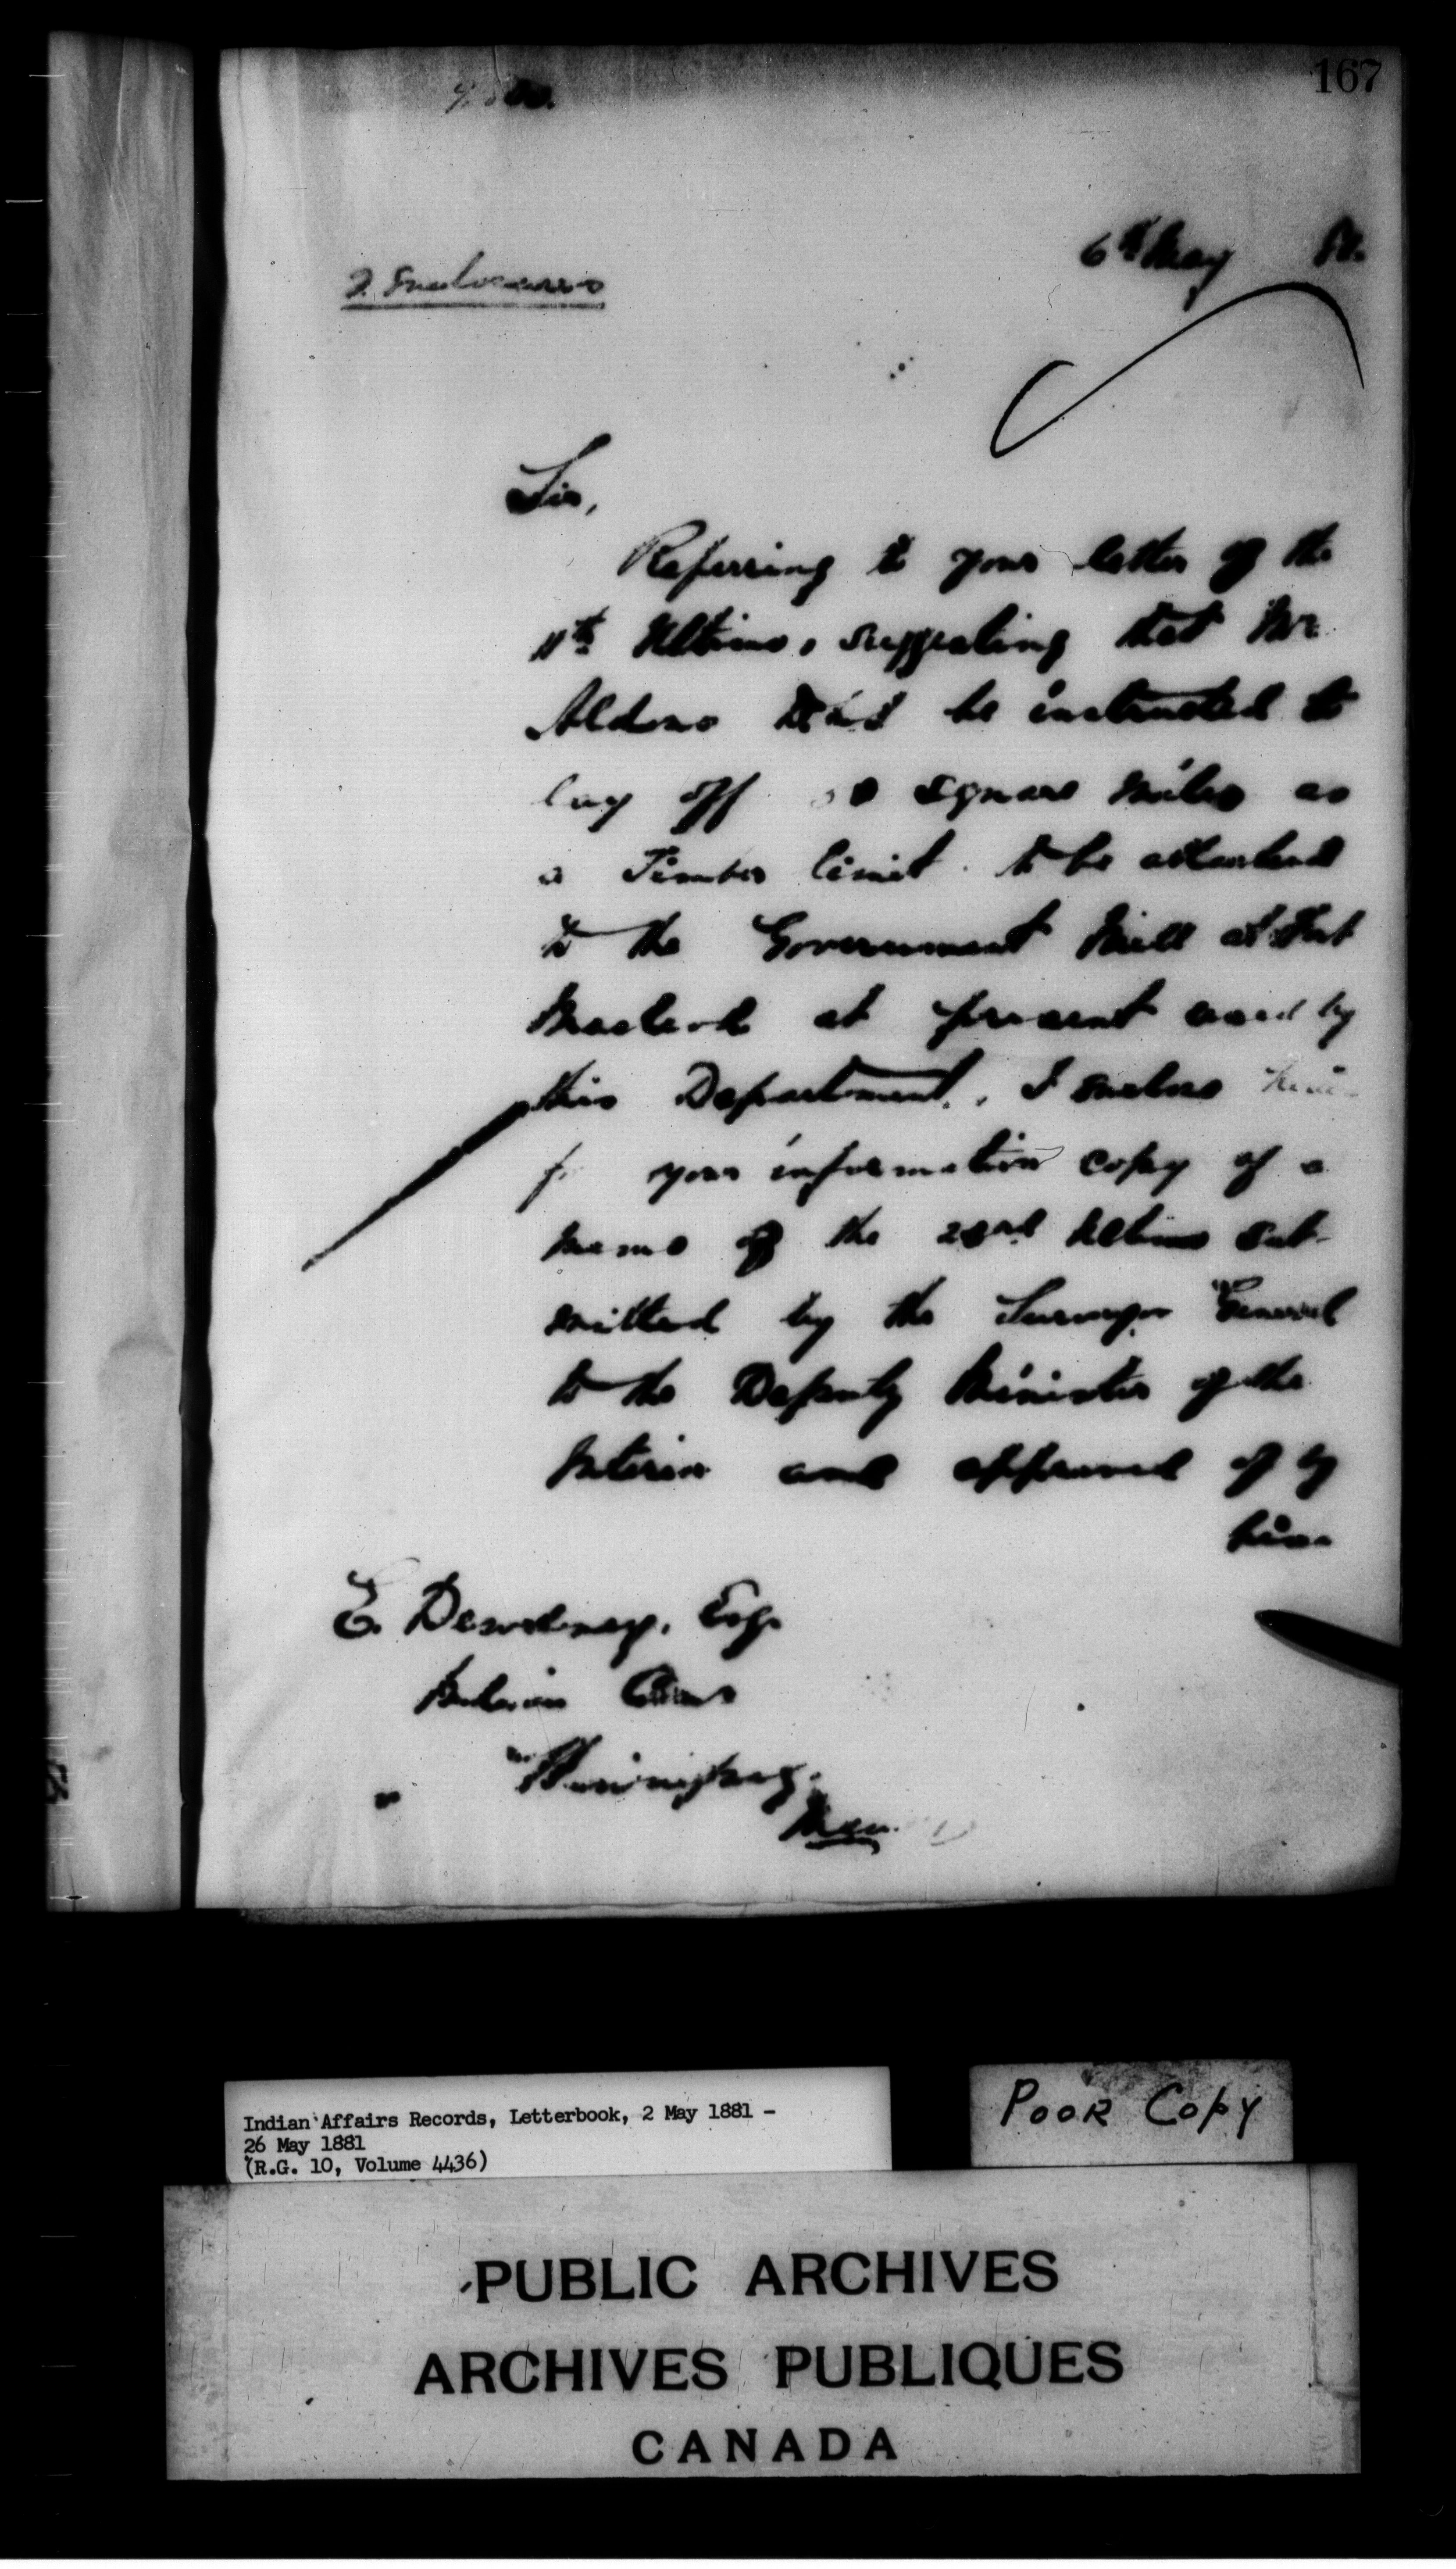 167
6th May 81.
2 Enclosures
Sir,
Referring to your letter of the
11th Ultimo, suggesting that Mr
be instructed to
lay off square miles as
a Timber limit to be attached
to the Government Mill at Fort
Macleod at present used by
this Department, I enclose
for your information copy of a
memo of the 23rd Ultimo sub-
mitted by the Surveyor General
to the Deputy Minister of the
Interior and approved of by
him
E. Dewdney, Esq.
Indian Comr
Winnipeg.
Man.
Indian Affairs Records, Letterbook, 2 May 1881 -
26 May 1881
(R.G. 10, Volume 4436)
POOR COPY
PUBLIC ARCHIVES
ARCHIVES PUBLIQUES
CANADA